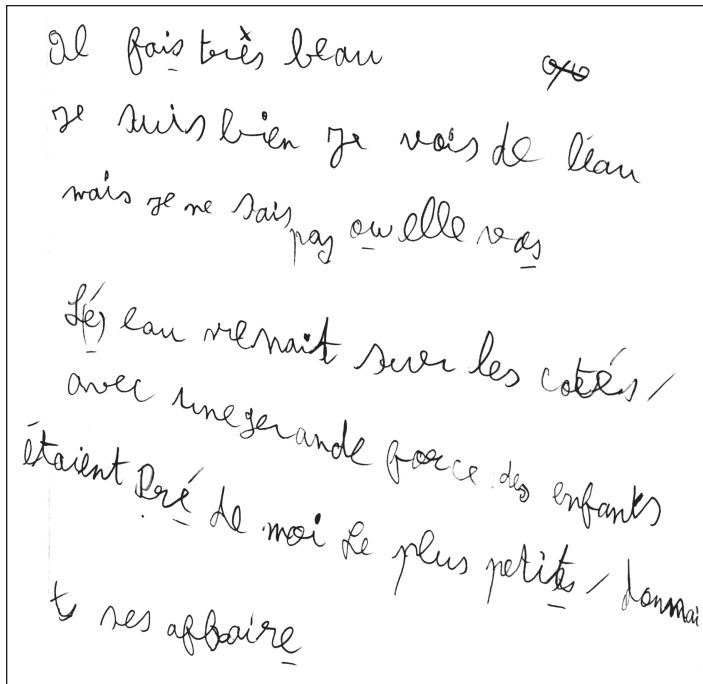 Il fais très beau
je suis bien je vois de l'éau
mais je ne sais pas ou elle vas
Lés eau venait sur les cotés /
avec une grande force des enfants
étaient Pré de moi Le plus petites / donnai
t ses affaire